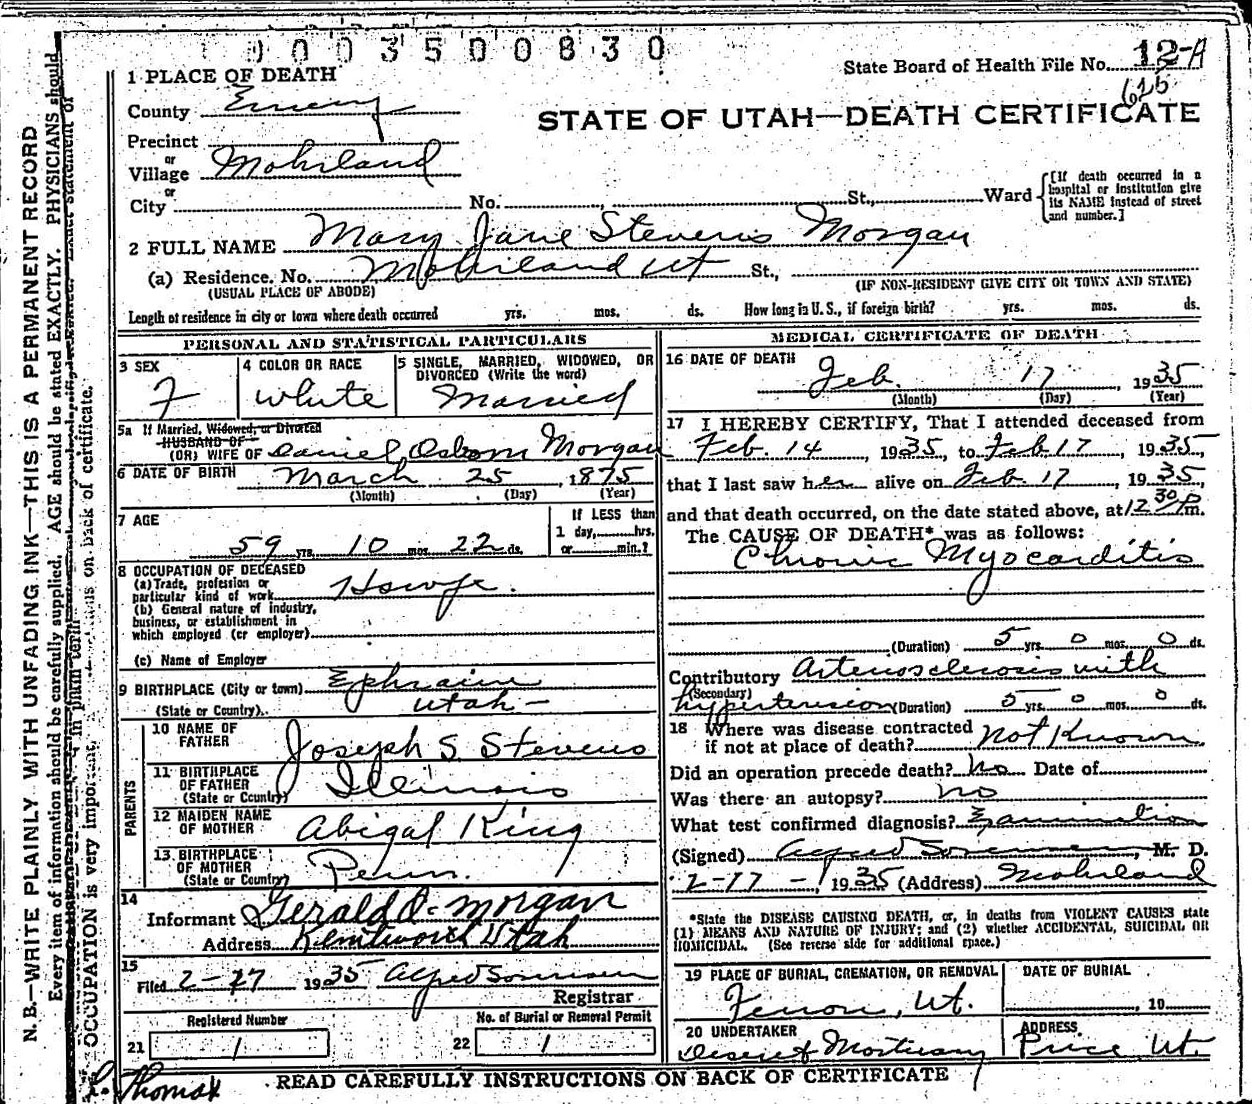 0 0 0 3 5 0 0 8 3 0
State Board of Health File No. 12-A
1 PLACE OF DEATH
County Emery
STATE OF UTAH—DEATH CERTIFICATE
Precinct
or
Village Mohrland
or
City No. , St., Ward
[If death occurred in a hospital or institution give its NAME instead of street and number.]
2 FULL NAME Mary Jane Stevens Morgan
(a) Residence. No. Mohrland Ut St.,
(USUAL PLACE OF ABODE) (IF NON-RESIDENT GIVE CITY OR TOWN AND STATE)
Length of residence in city or town where death occurred yrs. mos. ds. How long in U. S., if foreign birth? yrs. mos. ds.
PERSONAL AND STATISTICAL PARTICULARS
3 SEX
F
4 COLOR OR RACE
White
5 SINGLE, MARRIED, WIDOWED, OR
DIVORCED (Write the word)
Married
5a If Married, Widowed, or Divorced
HUSBAND OF
(OR) WIFE OF Daniel Osborn Morgan
6 DATE OF BIRTH March 25, 1875
(Month) (Day) (Year)
7 AGE
59 yrs. 10 mos. 22 ds.
If LESS than
1 day, hrs.
or min.?
8 OCCUPATION OF DECEASED
(a) Trade, profession or
particular kind of work Hswfe.
(b) General nature of industry,
business, or establishment in
which employed (or employer)
(c) Name of Employer
9 BIRTHPLACE (City or town) Ephraim
(State or Country). Utah -
PARENTS
10 NAME OF
FATHER Joseph S Stevens
11 BIRTHPLACE
OF FATHER
(State or Country) Illinois
12 MAIDEN NAME
OF MOTHER Abigal King
13 BIRTHPLACE
OF MOTHER
(State or Country) Penn.
14
Informant Gerald O- Morgan
Address Kenilworth Utah
15
Filed 2-27 1935 Alfred Sorensen
Registrar
Registered Number
21 1
No. of Burial or Removal Permit
22 1
MEDICAL CERTIFICATE OF DEATH
16 DATE OF DEATH
Feb. 17, 1935
(Month) (Day) (Year)
17 I HEREBY CERTIFY, That I attended deceased from
Feb. 14 1935, to Feb 17, 1935,
that I last saw her alive on Feb. 17, 1935,
and that death occurred, on the date stated above, at 12 30 P m.
The CAUSE OF DEATH* was as follows:
Chronic Myocarditis
(Duration) 5 yrs. 0 mos. 0 ds.
Contributory Arteriosclerosis with
(Secondary)
hypertension (Duration) 5 yrs. 0 mos. 0 ds.
18 Where was disease contracted
if not at place of death? Not Known
Did an operation precede death? No Date of
Was there an autopsy? no
What test confirmed diagnosis? Examination
(Signed) Alfred Sorensen, M. D.
2-17-, 1935 (Address) Mohrland
*State the DISEASE CAUSING DEATH, or, in deaths from VIOLENT CAUSES state
(1) MEANS AND NATURE OF INJURY; and (2) whether ACCIDENTAL, SUICIDAL OR
HOMICIDAL. (See reverse side for additional space.)
19 PLACE OF BURIAL, CREMATION, OR REMOVAL
Ferron, Ut.
DATE OF BURIAL
, 19
20 UNDERTAKER
Deseret Mortuary
ADDRESS
Price Ut.
READ CAREFULLY INSTRUCTIONS ON BACK OF CERTIFICATE
Thomas
N. B.—WRITE PLAINLY WITH UNFADING INK—THIS IS A PERMANENT RECORD
Every item of information should be carefully supplied. AGE should be stated EXACTLY. PHYSICIANS should
in plain term
OCCUPATION is very important. on back of certificate.